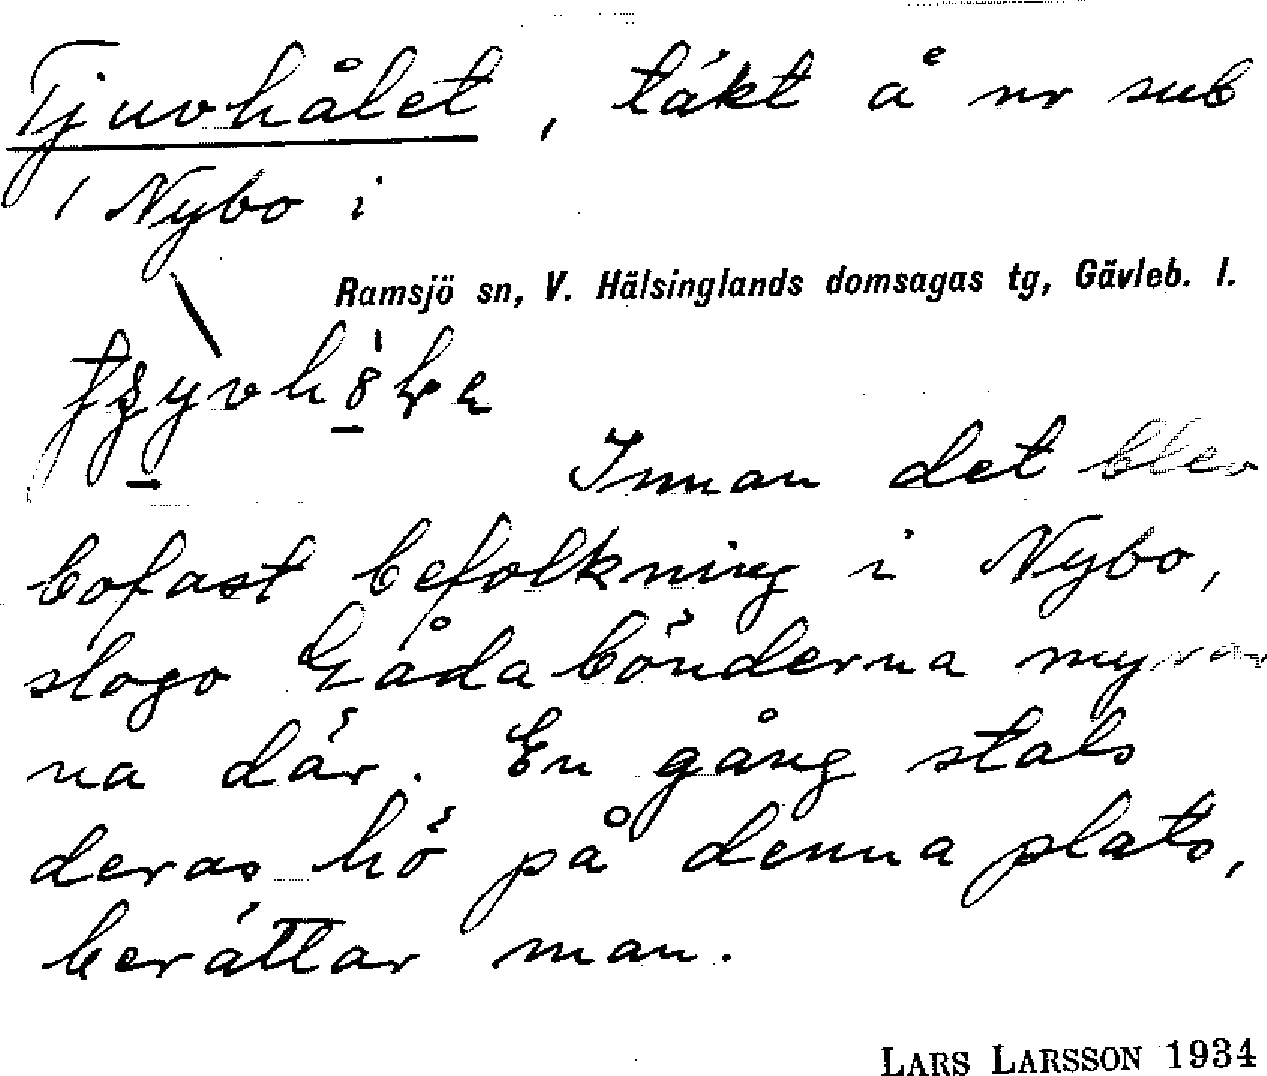 Tjuvhålet, täkt å nr sub
1 Nybo i
Ramsjö sn, V. Hälsinglands domsagas tg, Gävleb. l.
Innan det blev
bofast befolkning i Nybo,
slogo Gådabönderna myrar
na där. En gång stals
deras hö på denna plats,
berättar man.
LARS LARSSON 1934